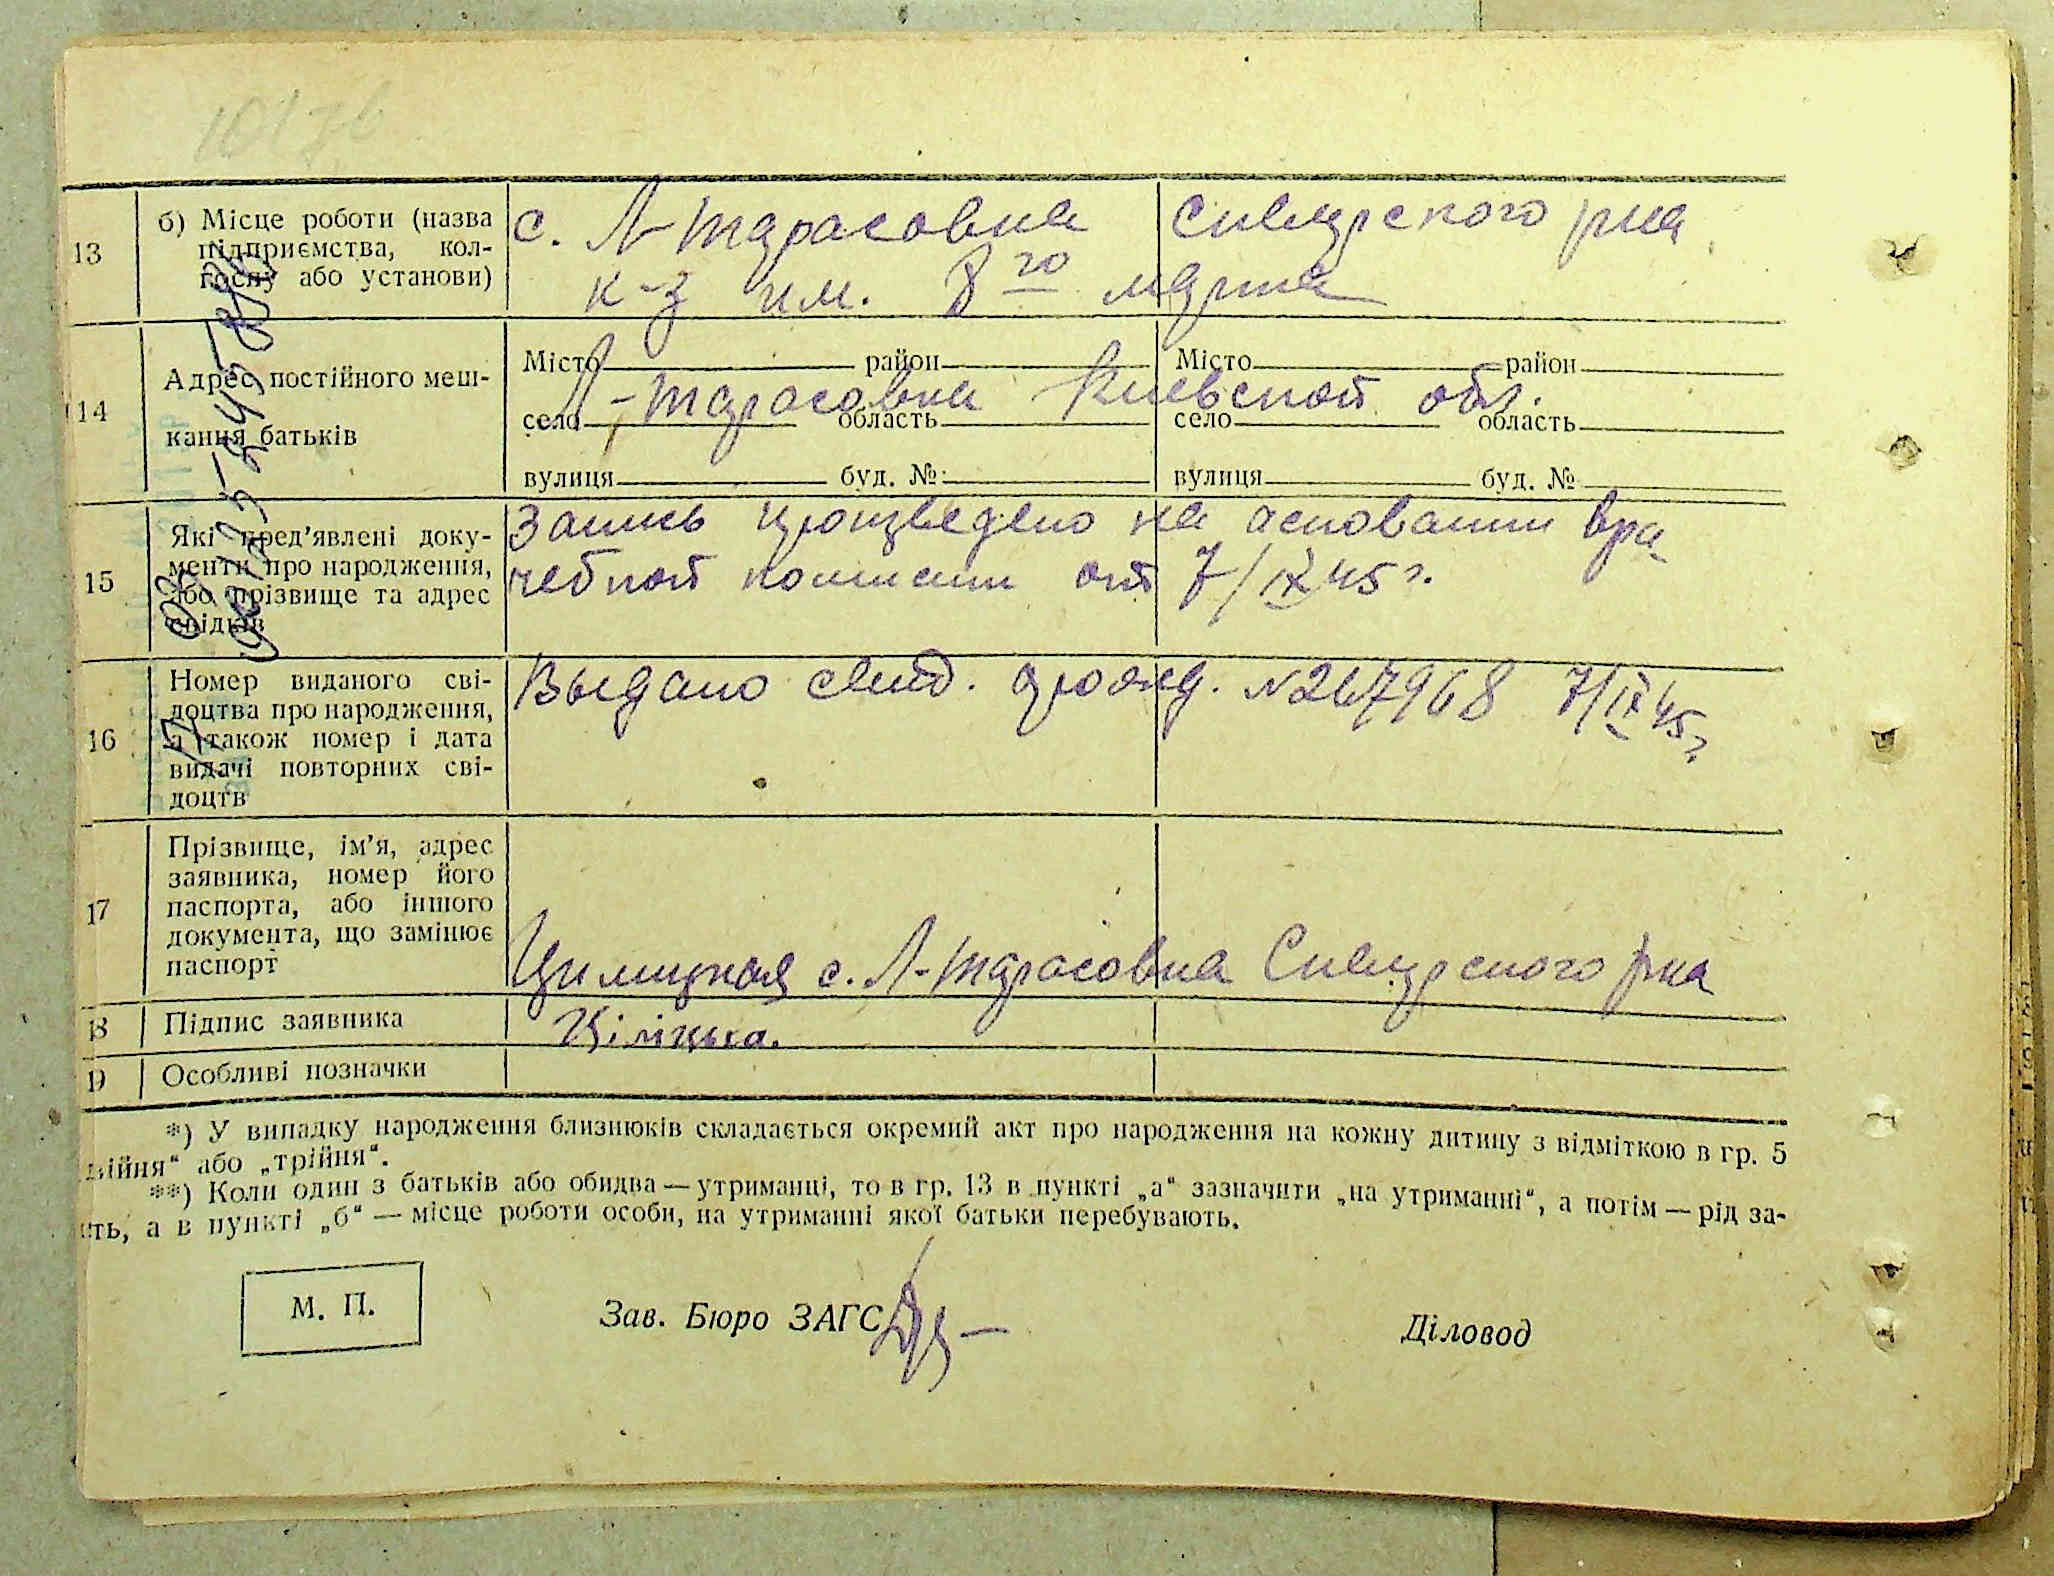 13
б) Місце роботи (назва
підприємства, кол-
госпу або установи)
с. Л-Тарасовка Сквирского р-на
к-з им. 8го марта
14
Адрес постійного меш-
кання батьків
Місто район Місто район
Л-Тарасовка Киевской обл.
село область село область
вулиця буд. № вулиця буд. №
15
Які пред’явлені доку-
менти про народження,
або прізвище та адрес
свідків
Запись произведено на основании вра-
чебной комиссии от 7/IX 45 г.
16
Номер виданого сві-
доцтва про народження,
а також номер і дата
видачі повторних сві-
доцтв
Выдано свид. о рожд. N 267968 7/IX 45 г.
17
Прізвище, ім’я, адрес
заявника, номер його
паспорта, або іншого
документа, що замінює
паспорт
с. Л-Тарасовка Сквирского р-на
18
Підпис заявника
19
Особливі позначки
*) У випадку народження близнюків складається окремий акт про народження на кожну дитину з відміткою в гр. 5
ійня“ або „трійня“.
**) Коли один з батьків або обидва — утриманці, то в гр. 13 в пункті „а“ зазначити „на утриманні“, а потім — рід за-
ть, а в пункті „б“ — місце роботи особи, на утриманні якої батьки перебувають.
М. П.
Зав. Бюро ЗАГС
Діловод